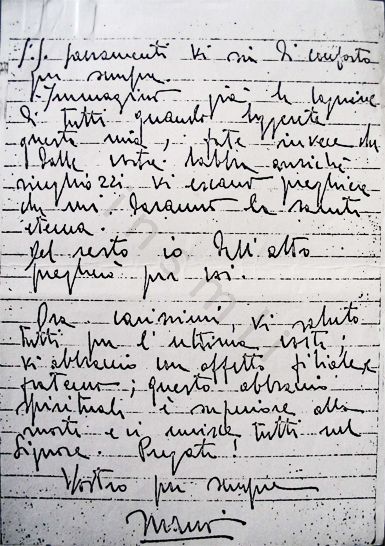 SS. Sacramenti vi sia di conforto
per sempre.
Immagino già le lagrime
di tutti quando leggerete
questa mia, fate invece che
dalle vostre labbra anziché
singhiozzi vi escano preghiere
che mi daranno la salute
eterna.
Del resto io dall'alto
pregherò per voi.
Ora carissimi, vi saluto
tutti per l'ultima volta;
vi abbraccio con affetto filiale e
fraterno; questo abbraccio
spirituale è superiore alla
morte e ci unisce tutti nel
Signore. Pregate!
Vostro per sempre
inamil